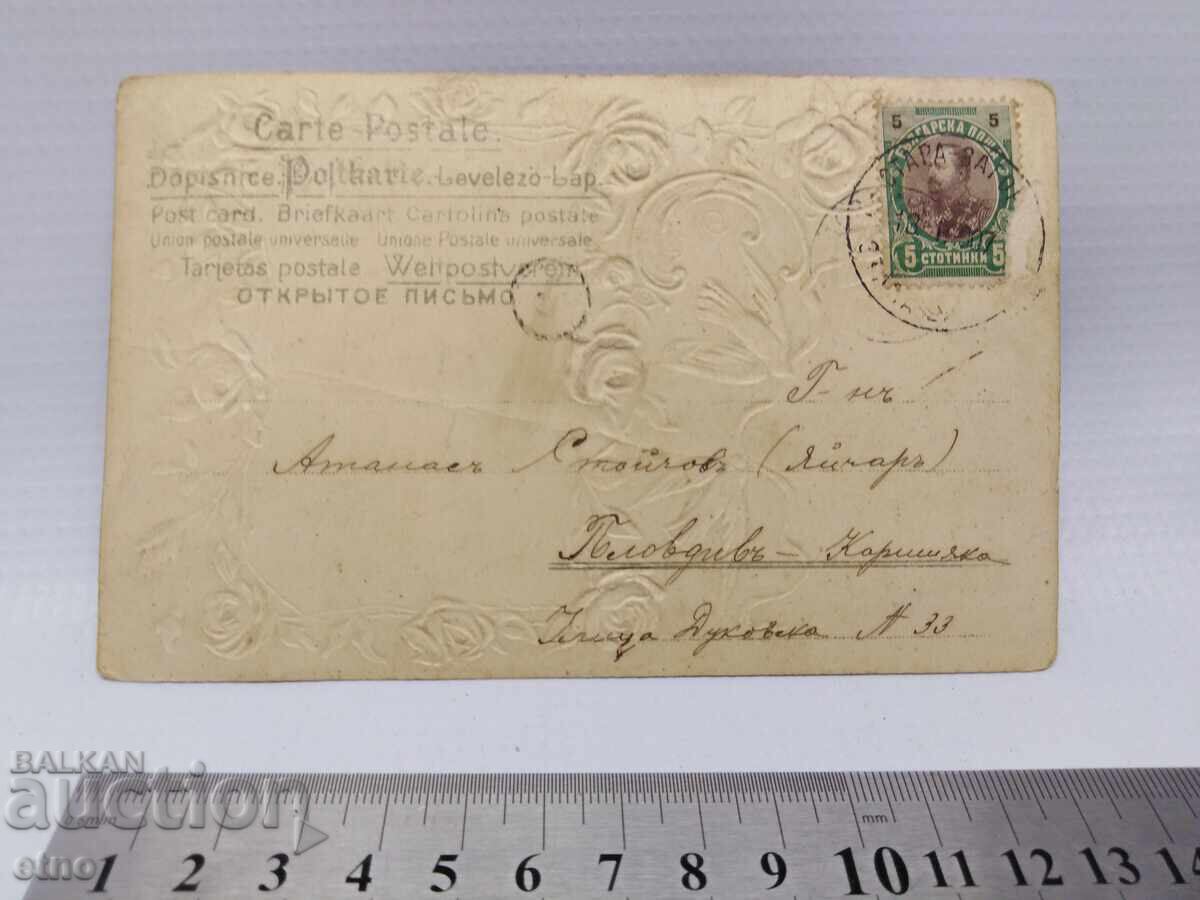 Carte Postale
Dopisnice. Postkarte. Levelezö-Lap.
Post card. Briefkaart Cartolina postale
Union postale universelle Unione Postale universale
Tarjetas postale Weltpostverein
ОТКРЫТОЕ ПИСЬМО
5 5
БЪЛГАРСКА ПОЩА
СТАРА ЗАГОРА
5 СТОТИНКИ 5
Г-нъ
Атанасъ Стойчовъ (Яйчаръ)
Пловдивъ – Каршияка
Улица Дуковска N 33
BALKAN
auction
etno
mm
1 2 3 4 5 6 7 8 9 10 11 12 13 14